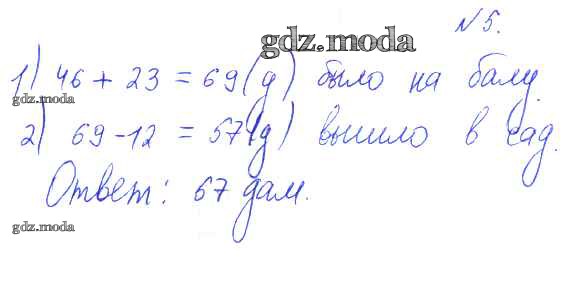 №5.
gdz.moda
1) 46 + 23 = 69 (д) было на балу.
gdz.moda
2) 69 - 12 = 57 (д) вышло в сад.
Ответ: 67 дам.
gdz.moda